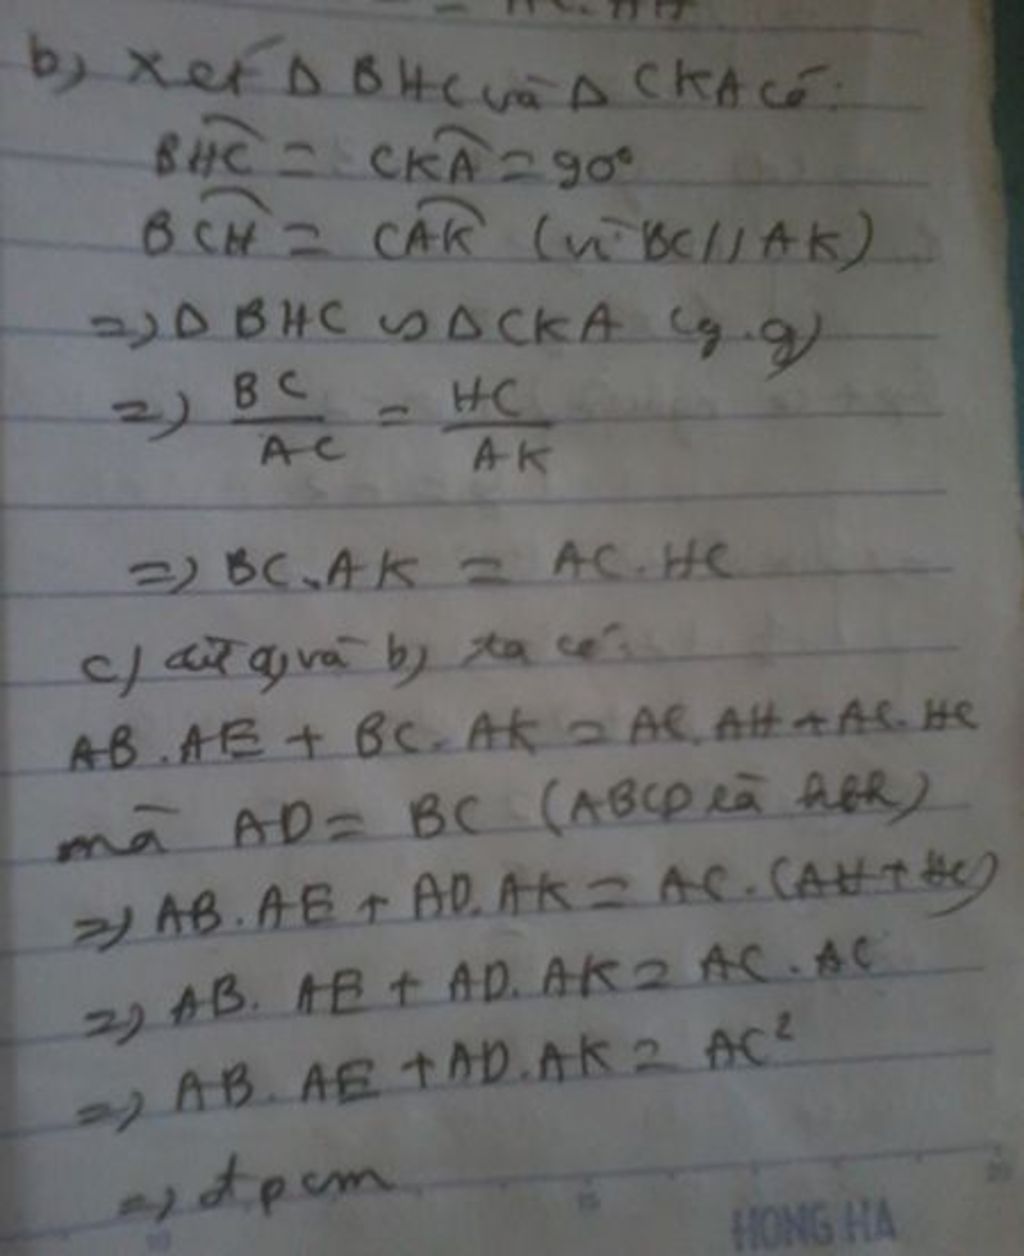 = AC.AH
b) xét Δ BHC và Δ CKA có:
BHC = CKA = 90°
BCH = CAK (vì BC // AK)
=> Δ BHC ∽ Δ CKA (g.g)
=> BC/AC = HC/AK
=> BC.AK = AC.HC
c) từ a) và b) ta có:
AB.AE + BC.AK = AC.AH + AC.HC
mà AD = BC (ABCD là hbh)
=> AB.AE + AD.AK = AC.(AH+HC)
=> AB.AE + AD.AK = AC.AC
=> AB.AE + AD.AK = AC²
=> đpcm
HONG HA